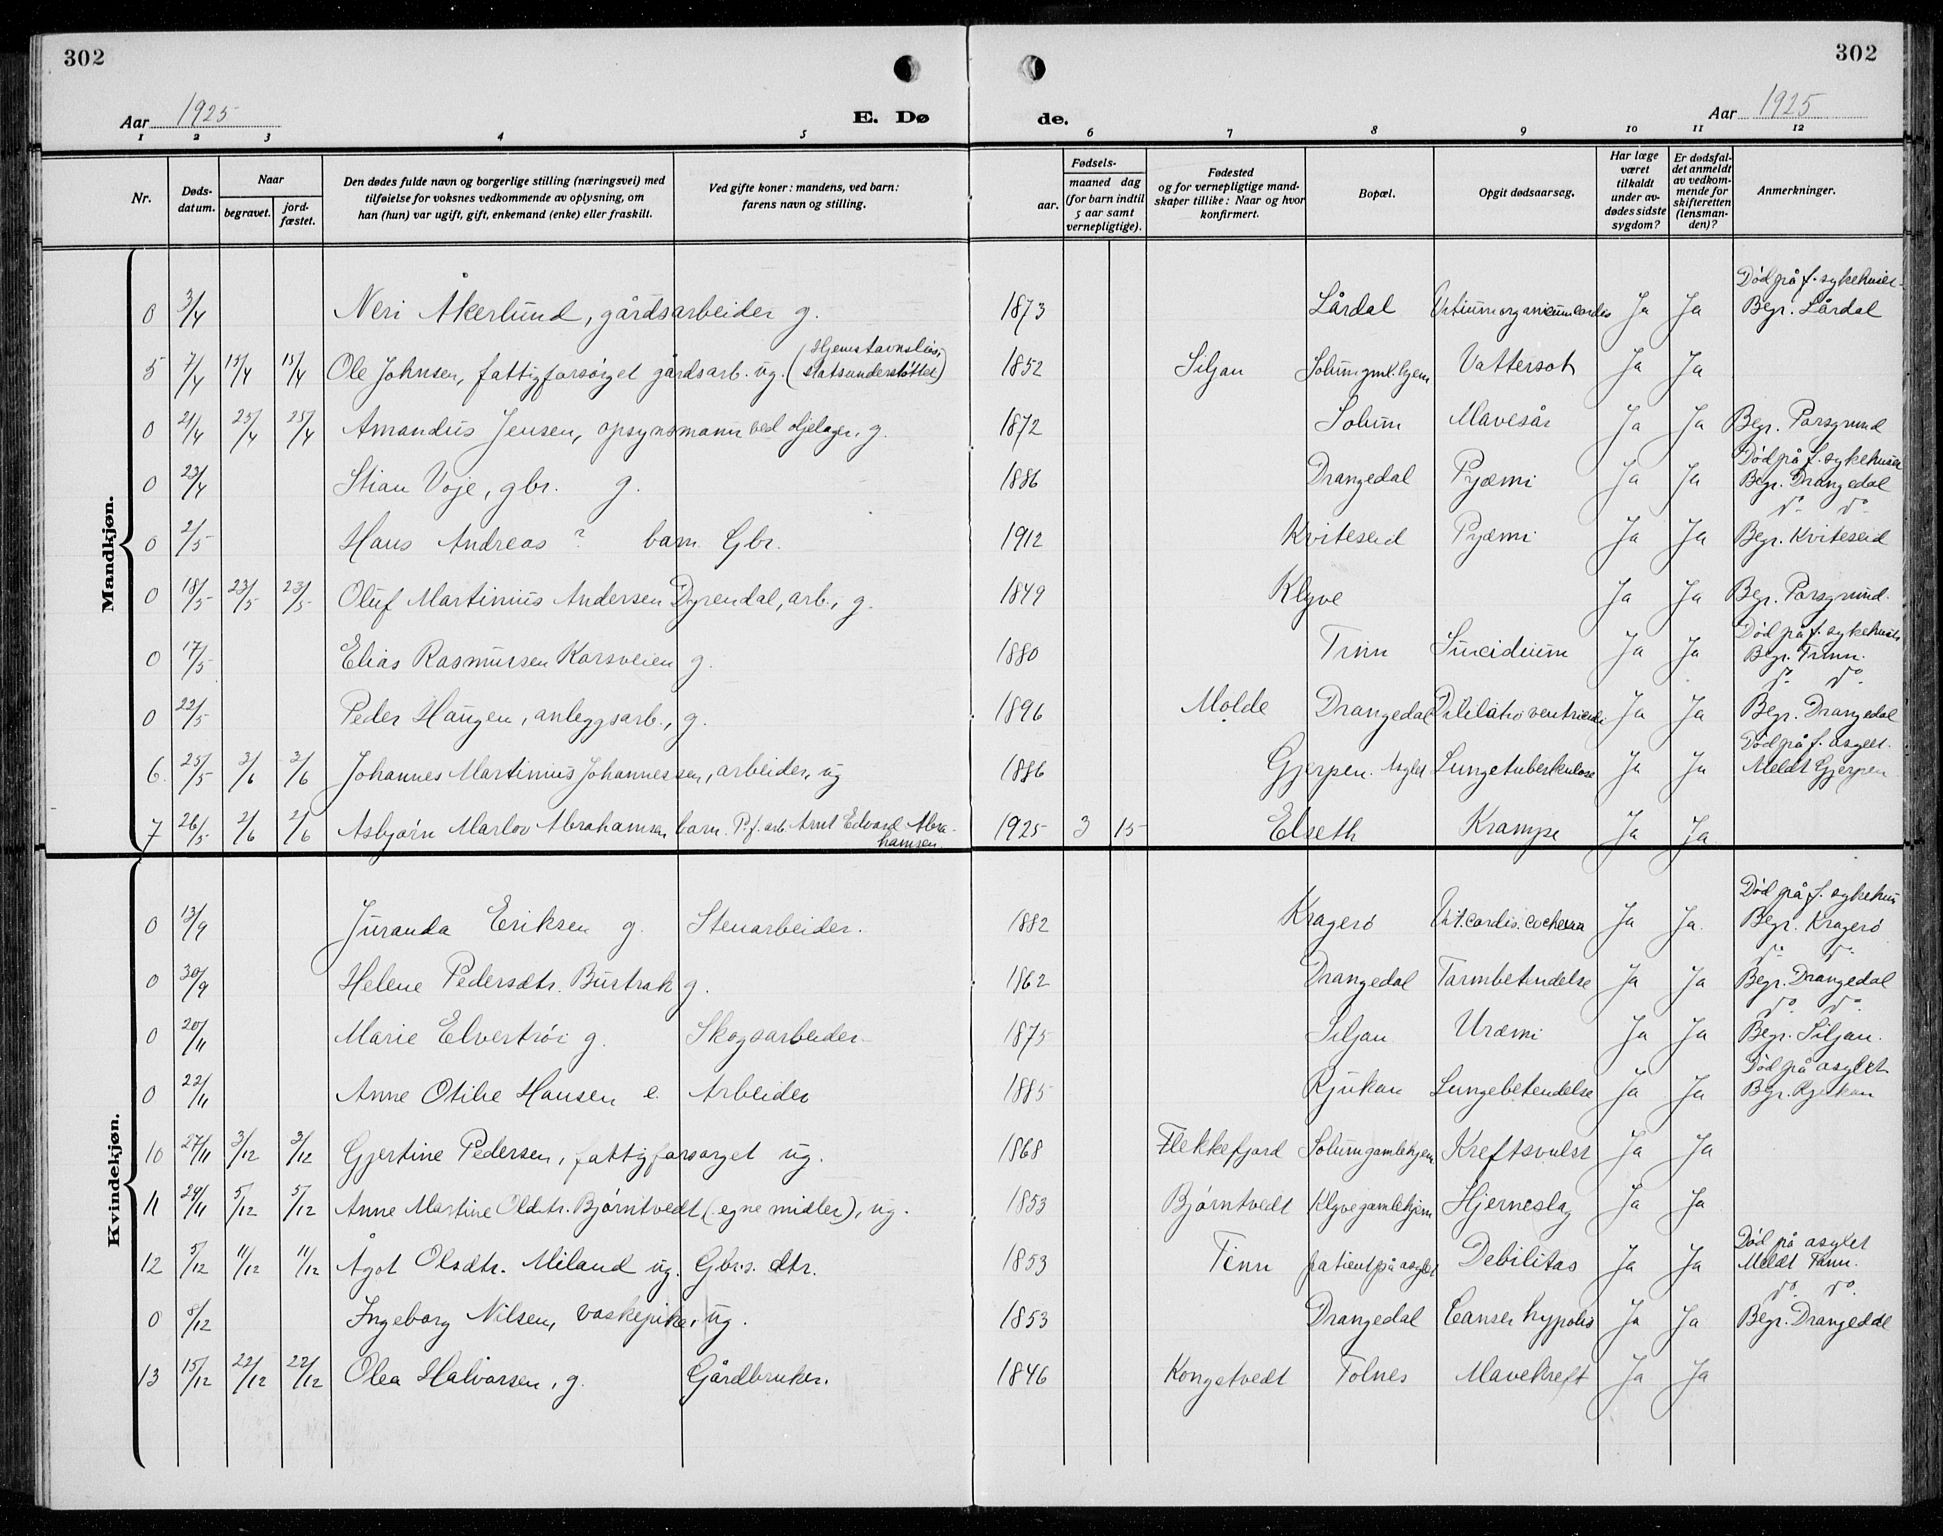 302
302
Aar 1925
E. Dø
de.
Aar 1925
1 2 3 4 5 6 7 8 9 10 11 12
Nr.
Døds-
datum.
Naar
begravet.
jord-
fæstet.
Den dødes fulde navn og borgerlige stilling (næringsvei) med
tilføielse for voksnes vedkommende av oplysning, om
han (hun) var ugift, gift, enkemand (enke) eller fraskilt.
Ved gifte koner: mandens, ved barn:
farens navn og stilling.
Fødsels-
aar.
maaned dag
(for barn indtil
5 aar samt
vernepligtige).
Fødested
og for vernepligtige mand-
skaper tillike: Naar og hvor
konfirmert.
Bopæl.
Opgit dødsaarsag.
Har læge
været
tilkaldt
under av-
dødes sidste
sygdom?
Er dødsfal-
det anmeldt
av vedkom-
mende for
skifteretten
(lensman-
den)?
Anmerkninger.
Mandkjøn.
Død på f. sykehuset
0 3/4 Neri Åkerlund, gårdsarbeider g. 1873 Lårdal Vitium organicum cordis Ja Ja Begr. Lårdal
5 7/4 15/4 15/4 Ole Johnsen, fattigforsørget gårdsarb. ug. (Hjemstavnsløs, statsunderstøttet) 1852 Siljan Solum gml.hjem Vattersot Ja Ja
0 21/4 25/4 25/4 Amandus Jensen, opsynsmann ved oljelager, g. 1872 Solum Mavesår Ja Ja Begr. Porsgrund
Død på f. sykehuset
0 23/4 Stian Voje, gbr. g. 1886 Drangedal Pyæmi Ja Ja Begr. Drangedal
do do
0 2/5 Hans Andreas ? barn Gbr. 1912 Kviteseid Pyæmi Ja Ja Begr. Kviteseid
0 18/5 23/5 23/5 Oluf Martinius Andersen Dyrendal, arb., g. 1849 Klyve Ja Ja Begr. Porsgrund.
Død på f. sykehuset
0 17/5 Elias Rasmussen Korsveien g. 1880 Tinn Suicidium Ja Ja Begr. Tinn.
do do
0 22/5 Peder Haugen, anleggsarb., g. 1896 Molde Drangedal Dilatio ventriculi Ja Ja Begr. Drangedal
Død på f. asylet.
6. 25/5 3/6 3/6 Johannes Martinius Johannessen, arbeider, ug 1886 Gjerpen. Asylet Lungetuberkulose Ja Ja Meldt Gjerpen
7 26/5 2/6 2/6 Asbjørn Marlov Abrahamsen barn P. f. arb. Arnt Edvard Abra-
hamsen 1925 3 15 Elseth Krampe Ja Ja
Kvindekjøn.
Død på f. sykehus
0 13/9 Juranda Eriksen g. Stenarbeider. 1882 Kragerø Vit. cordis. Ja Ja. Begr. Kragerø
do do
0 30/9 Helene Pedersdtr. Bustrak g. 1862 Drangedal Tarmbetendelse Ja Ja Begr. Drangedal
do do
0 20/11 Marie Elvertrøi g. Skogsarbeider 1875 Siljan Uræmi Ja Ja Begr. Siljan.
Død på asylet
0 22/11 Anne Otilie Hansen e. Arbeider 1885 Rjukan Lungebetendelse Ja Ja Begr. Rjukan
10 27/11 3/12 3/12 Gjertine Pedersen, fattigforsørget ug. 1868 Flekkefjord Solum gamlehjem Kreftsvulst Ja Ja
11 29/11 5/12 5/12 Anne Martine Oldtr. Bjørntvedt (egne midler), ug. 1853 Bjørntvedt Klyve gamlehjem Hjerneslag Ja Ja
Død på asylet
12 5/12 11/12 11/12 Ågot Olsdtr. Miland ug. Gbr.s. dtr. 1853 Tinn patient på asylet Debilitas Ja Ja Meldt Tinn.
do do.
0 8/12 Ingeborg Nilsen, vaskepike, ug. 1853 Drangedal Cancer hypofis Ja Ja Begr. Drangedal
13 15/12 22/12 22/12 Olea Halvorsen, g. Gårdbruker. 1846 Kongstvedt Tolnes Mavekreft Ja Ja